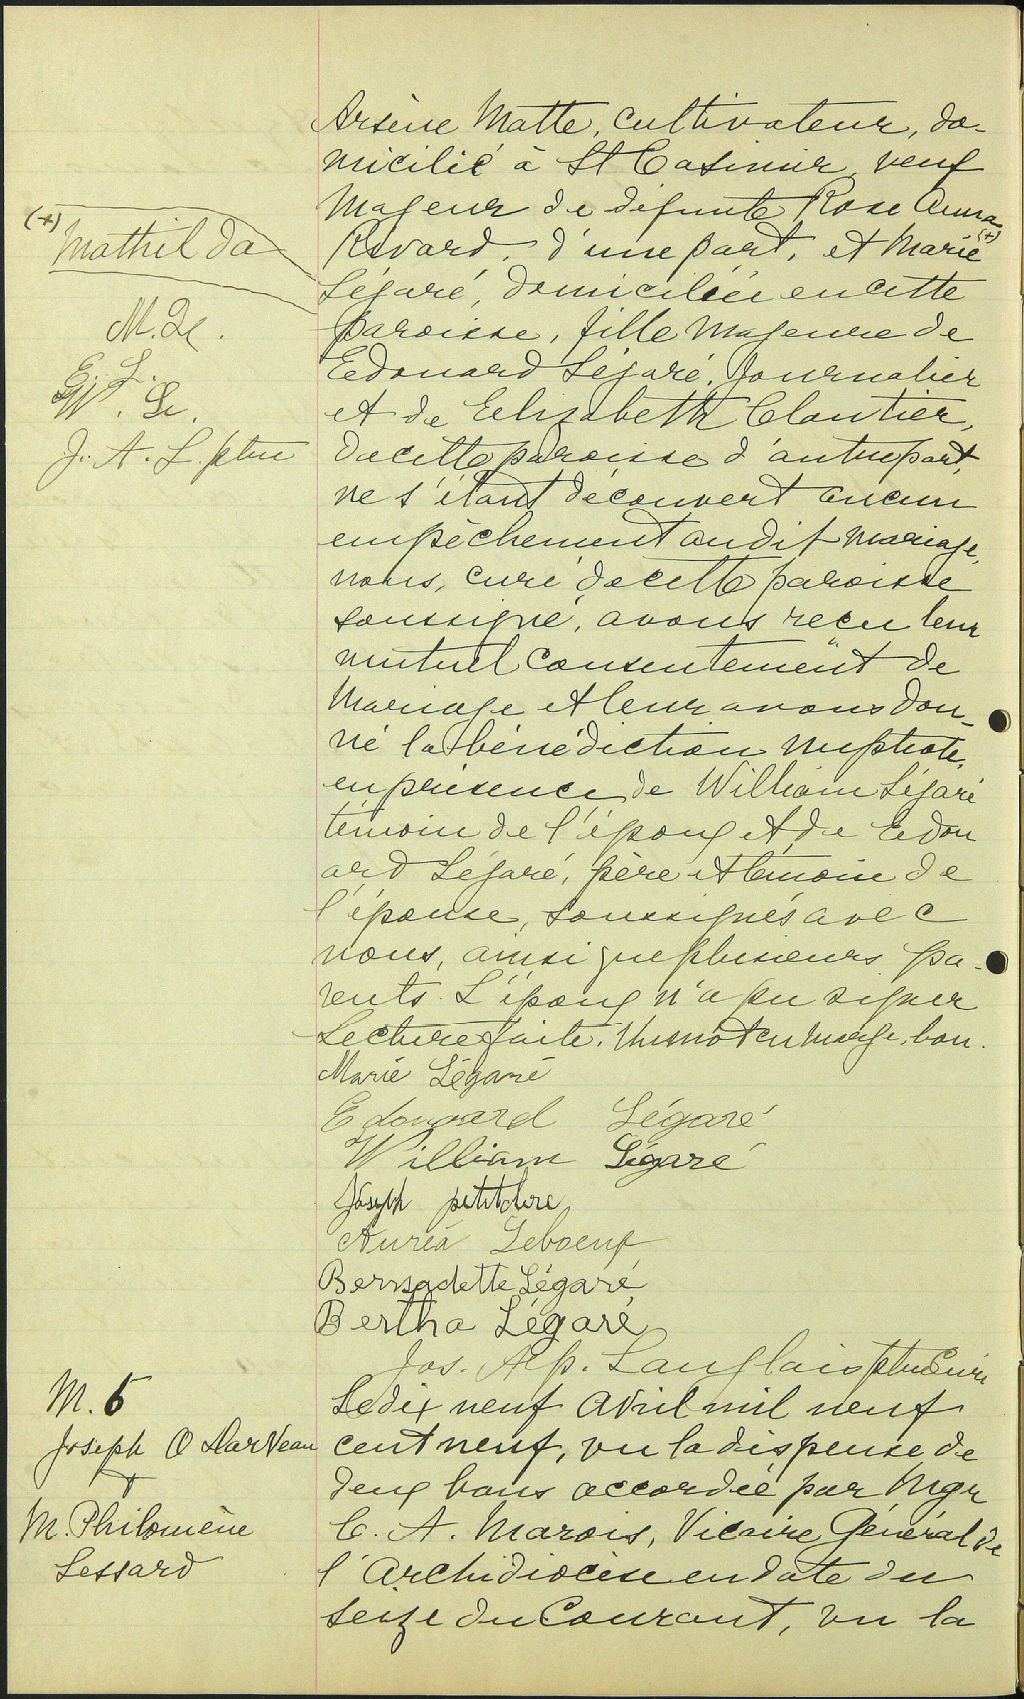 Arsène Matte, cultivateur, do-
micilié à St Casimir, veuf
Majeur de défunte Rose Anna
Rivard, d'une part, et Marie (+)
Légaré, domiciliée en cette
paroisse, fille Majeure de
Edouard Légaré, Journalier
et de Elizabeth Cloutier,
de cette paroisse d'autre part,
ne s'étant découvert aucun
empêchement au dit mariage,
nous, curé de cette paroisse
soussigné, avons reçu leur
mutuel consentement de
Mariage et leur avons don-
né la bénédiction nuptiale,
en présence de William Légaré
témoin de l'époux et de Edou
ard Légaré, père et témoin de
l'épouse, soussignés avec
nous, ainsi que plusieurs pa-
rents. L'époux n'a pu signer
Lecture faite. Un mot en marge, bon.
Marie Légaré
Edouard Légaré
William Légaré
Joseph petitclerc
Auréa Leboeuf
Bernadette Légaré
Bertha Légaré
Jos. Alp. Langlois ptre Curé
(+)
Mathilda
M. L.
E. L.
W. L.
J. A. L. ptre
M. 5
Joseph O Darveau
+
M. Philomène
Lessard
Le dix neuf Avril mil neuf
cent neuf, vu la dispense de
deux bans accordée par Mgr
C. A. Marois, Vicaire Général de
l'Archidiocèse en date du
seize du Courant, vu la